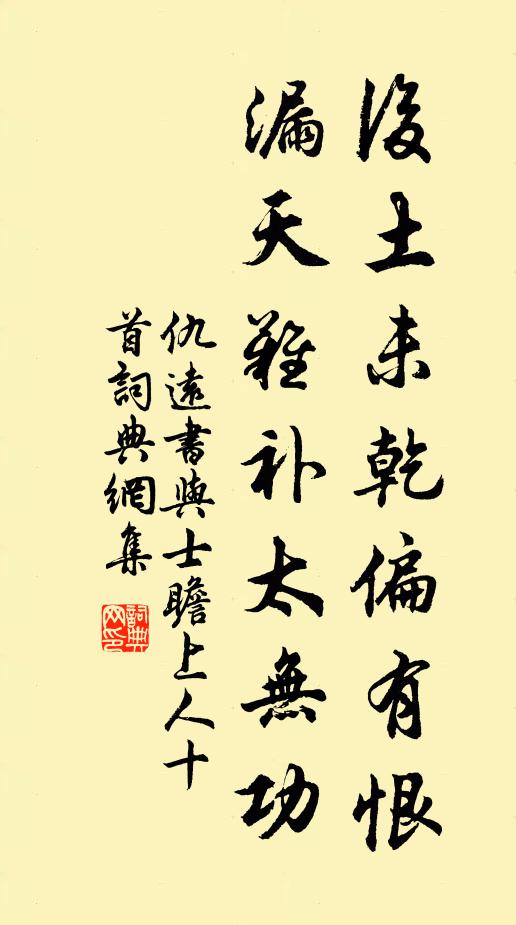 後土未乾偏有恨
漏天難补太無功
仇遠書與士瞻上人十
首詞典網集
詞典
网印